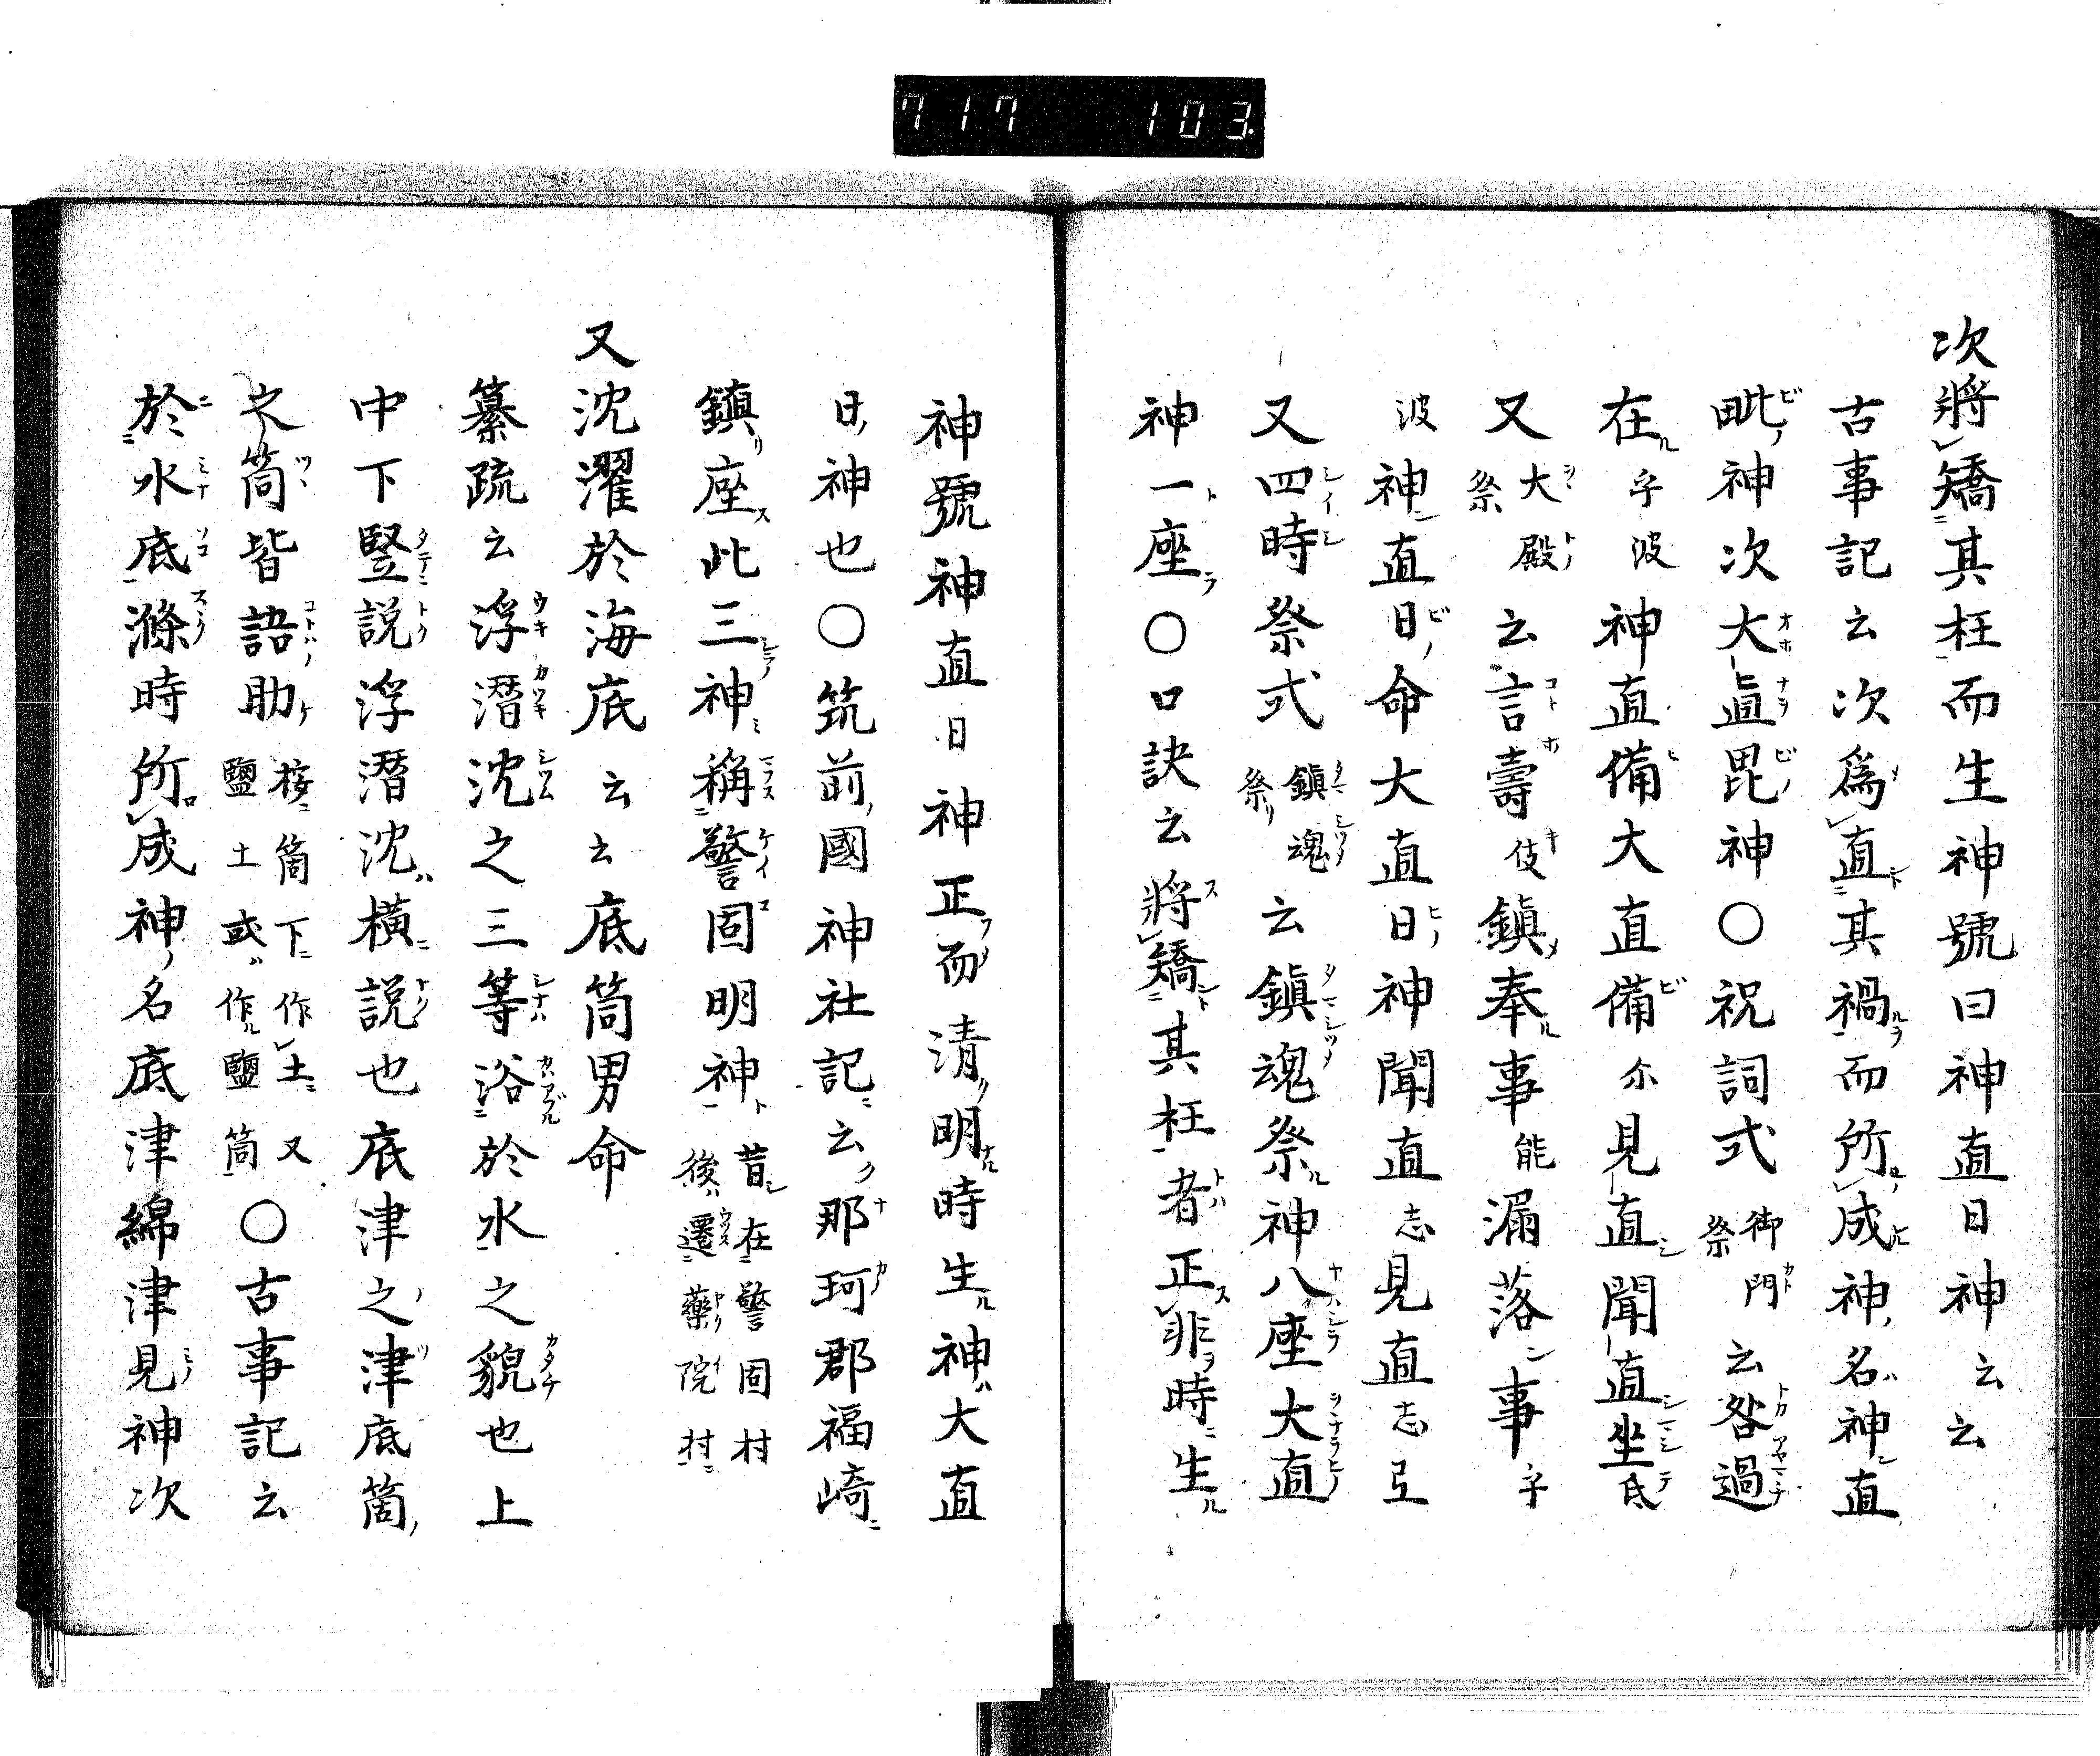 717 103.
次將矯其枉而生神號曰神直日神云云
古事記云次爲直其禍而所成神名神直
毗神次大直毘神○祝詞式御門祭云咎過
在乎波神直備大直備尓見直聞直坐氐
又大殿祭云言壽伎鎮奉事能漏落事乎
波神直日命大直日神聞直志見直志弖
又四時祭式鎮魂祭云鎮魂祭神八座大直
神一座○口訣云將矯其枉者正非時生
神號神直日神正而清明時生神大直
日神也○筑前國神社記云那珂郡福崎
鎮座此三神稱警固明神昔在警固村後遷藥院村
又沈濯於海底云云底筒男命
纂疏云浮潛沈之三等浴於水之貌也上
中下豎説浮潛沈橫説也底津之津底箇
之筒皆語助按箇下作土又鹽土或作鹽筒○古事記云
於水底滌時所成神名底津綿津見神次